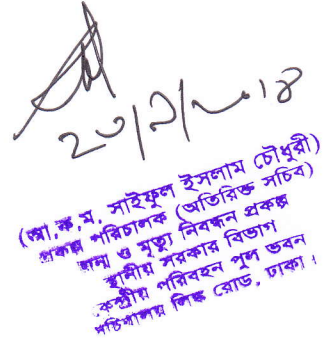 ২০/২/২০১৪
(আ.ক.ম. সাইফুল ইসলাম চৌধুরী)
প্রকল্প পরিচালক (অতিরিক্ত সচিব)
জন্ম ও মৃত্যু নিবন্ধন প্রকল্প
স্থানীয় সরকার বিভাগ
কেন্দ্রীয় পরিবহন পুল ভবন
সচিবালয় লিঙ্ক রোড, ঢাকা।